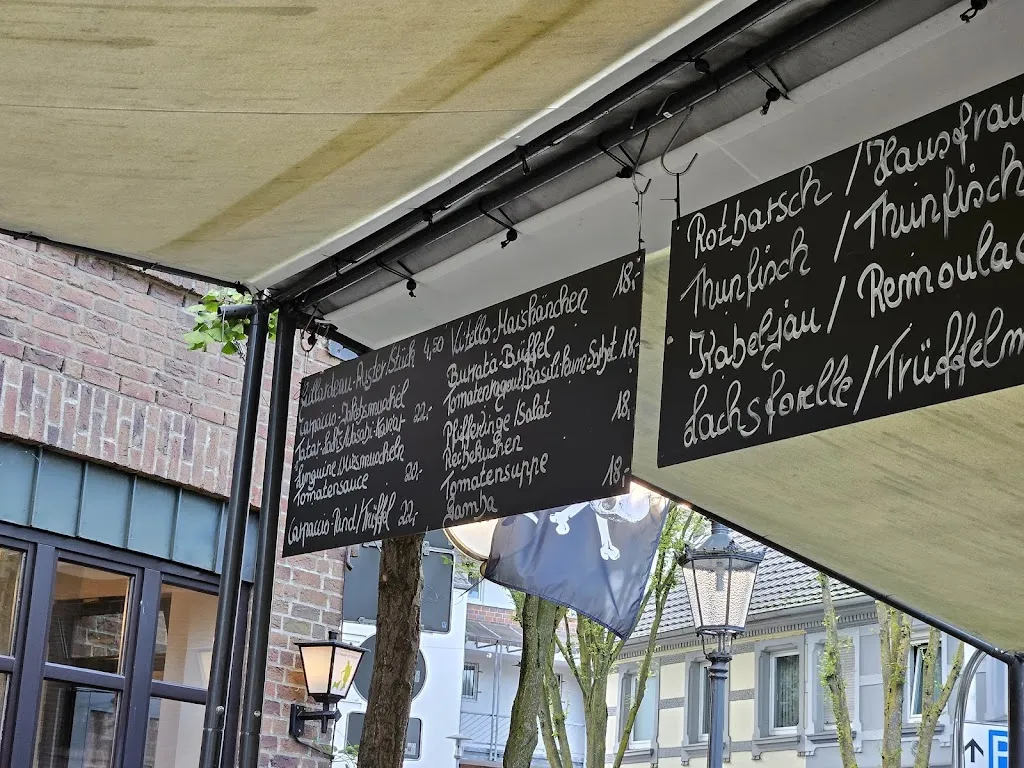 Gillardeau-Auster, Stück 4,50
Carpaccio-Jakobsmuschel
Tatar-Lachs/Wasabi-Kaviar 22,-
Linguine Miesmuscheln
Tomatensauce 22,-
Carpaccio-Rind/Trüffel 22,-
Vitello-Maishänchen 18,-
Burrata-Büffel
Tomatengewürz/Basilikum 18,-
Pfifferinge/Salat
Reibekuchen 18,-
Tomatensuppe
Gamba 18,-
Rotbarsch / Hausfrau
Thunfisch / Thunfisch
Kabeljau / Remoulad
Lachsforelle / Trüffelm
P